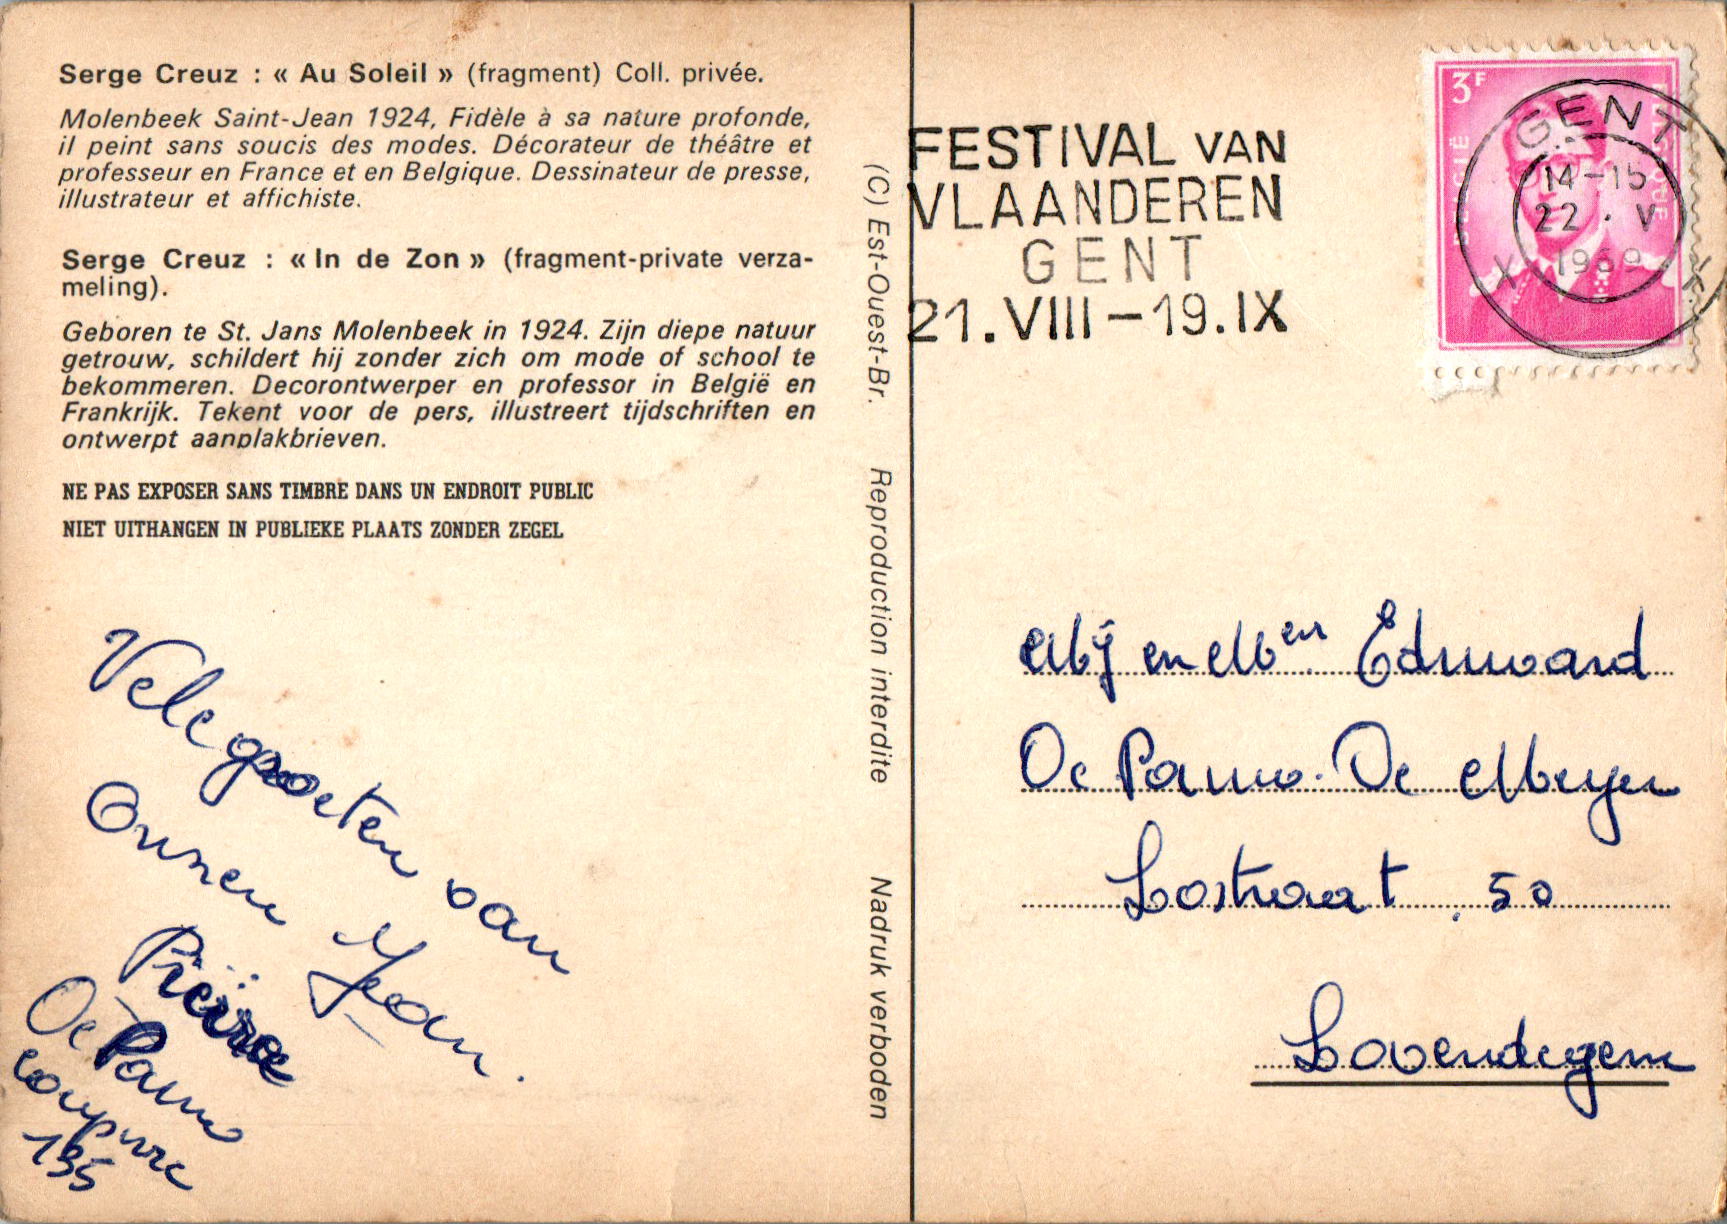 Serge Creuz : « Au Soleil » (fragment) Coll. privée.
Molenbeek Saint-Jean 1924, Fidèle à sa nature profonde,
il peint sans soucis des modes. Décorateur de théâtre et
professeur en France et en Belgique. Dessinateur de presse,
illustrateur et affichiste.
Serge Creuz : « In de Zon » (fragment-private verza-
meling).
Geboren te St. Jans Molenbeek in 1924. Zijn diepe natuur
getrouw, schildert hij zonder zich om mode of school te
bekommeren. Decorontwerper en professor in België en
Frankrijk. Tekent voor de pers, illustreert tijdschriften en
ontwerpt aanplakbrieven.
NE PAS EXPOSER SANS TIMBRE DANS UN ENDROIT PUBLIC
NIET UITHANGEN IN PUBLIEKE PLAATS ZONDER ZEGEL
Vele groeten van
Onzen Jean.
Pierre
De Pauw
Coupure
195
(C) Est-Ouest-Br. Reproduction interdite Nadruk verboden
FESTIVAL VAN
VLAANDEREN
GENT
21.VIII-19.IX
3F
BELGIË
BELGIQUE
GENT
14-15
22 · V
1969
X X
Mij en Men Edward
De Pauw. De Meyer
Lostraat 50
Lovendegem